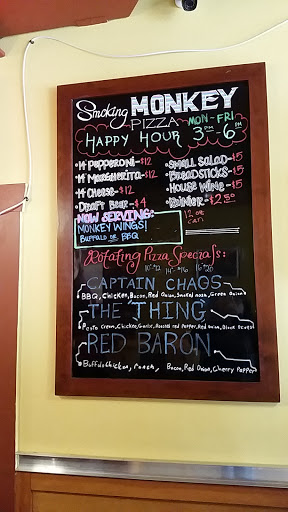 Smoking MONKEY
PIZZA MON-FRI
HAPPY HOUR 3PM-6PM
14" Pepperoni-$12
14" Margherita-$12
14" Cheese-$12
Draft Beer-$4
Small Salad-$5
Breadsticks-$5
House Wine-$5
Rainier-$2.50
12 oz can
NOW SERVING:
MONKEY WINGS!
BUFFALO OR BBQ
Rotating Pizza Specials:
10"-$12 14"-$16 16"-$20
CAPTAIN CHAOS
BBQ, Chicken, Bacon, Red Onion, Smoked mozz, Green Onion
THE THING
Pesto Cream, Chicken, Garlic, Roasted red Pepper, Red Onion, Black
RED BARON
Buffalo Chicken, Ranch, Bacon, Red Onion, Cherry Pepper